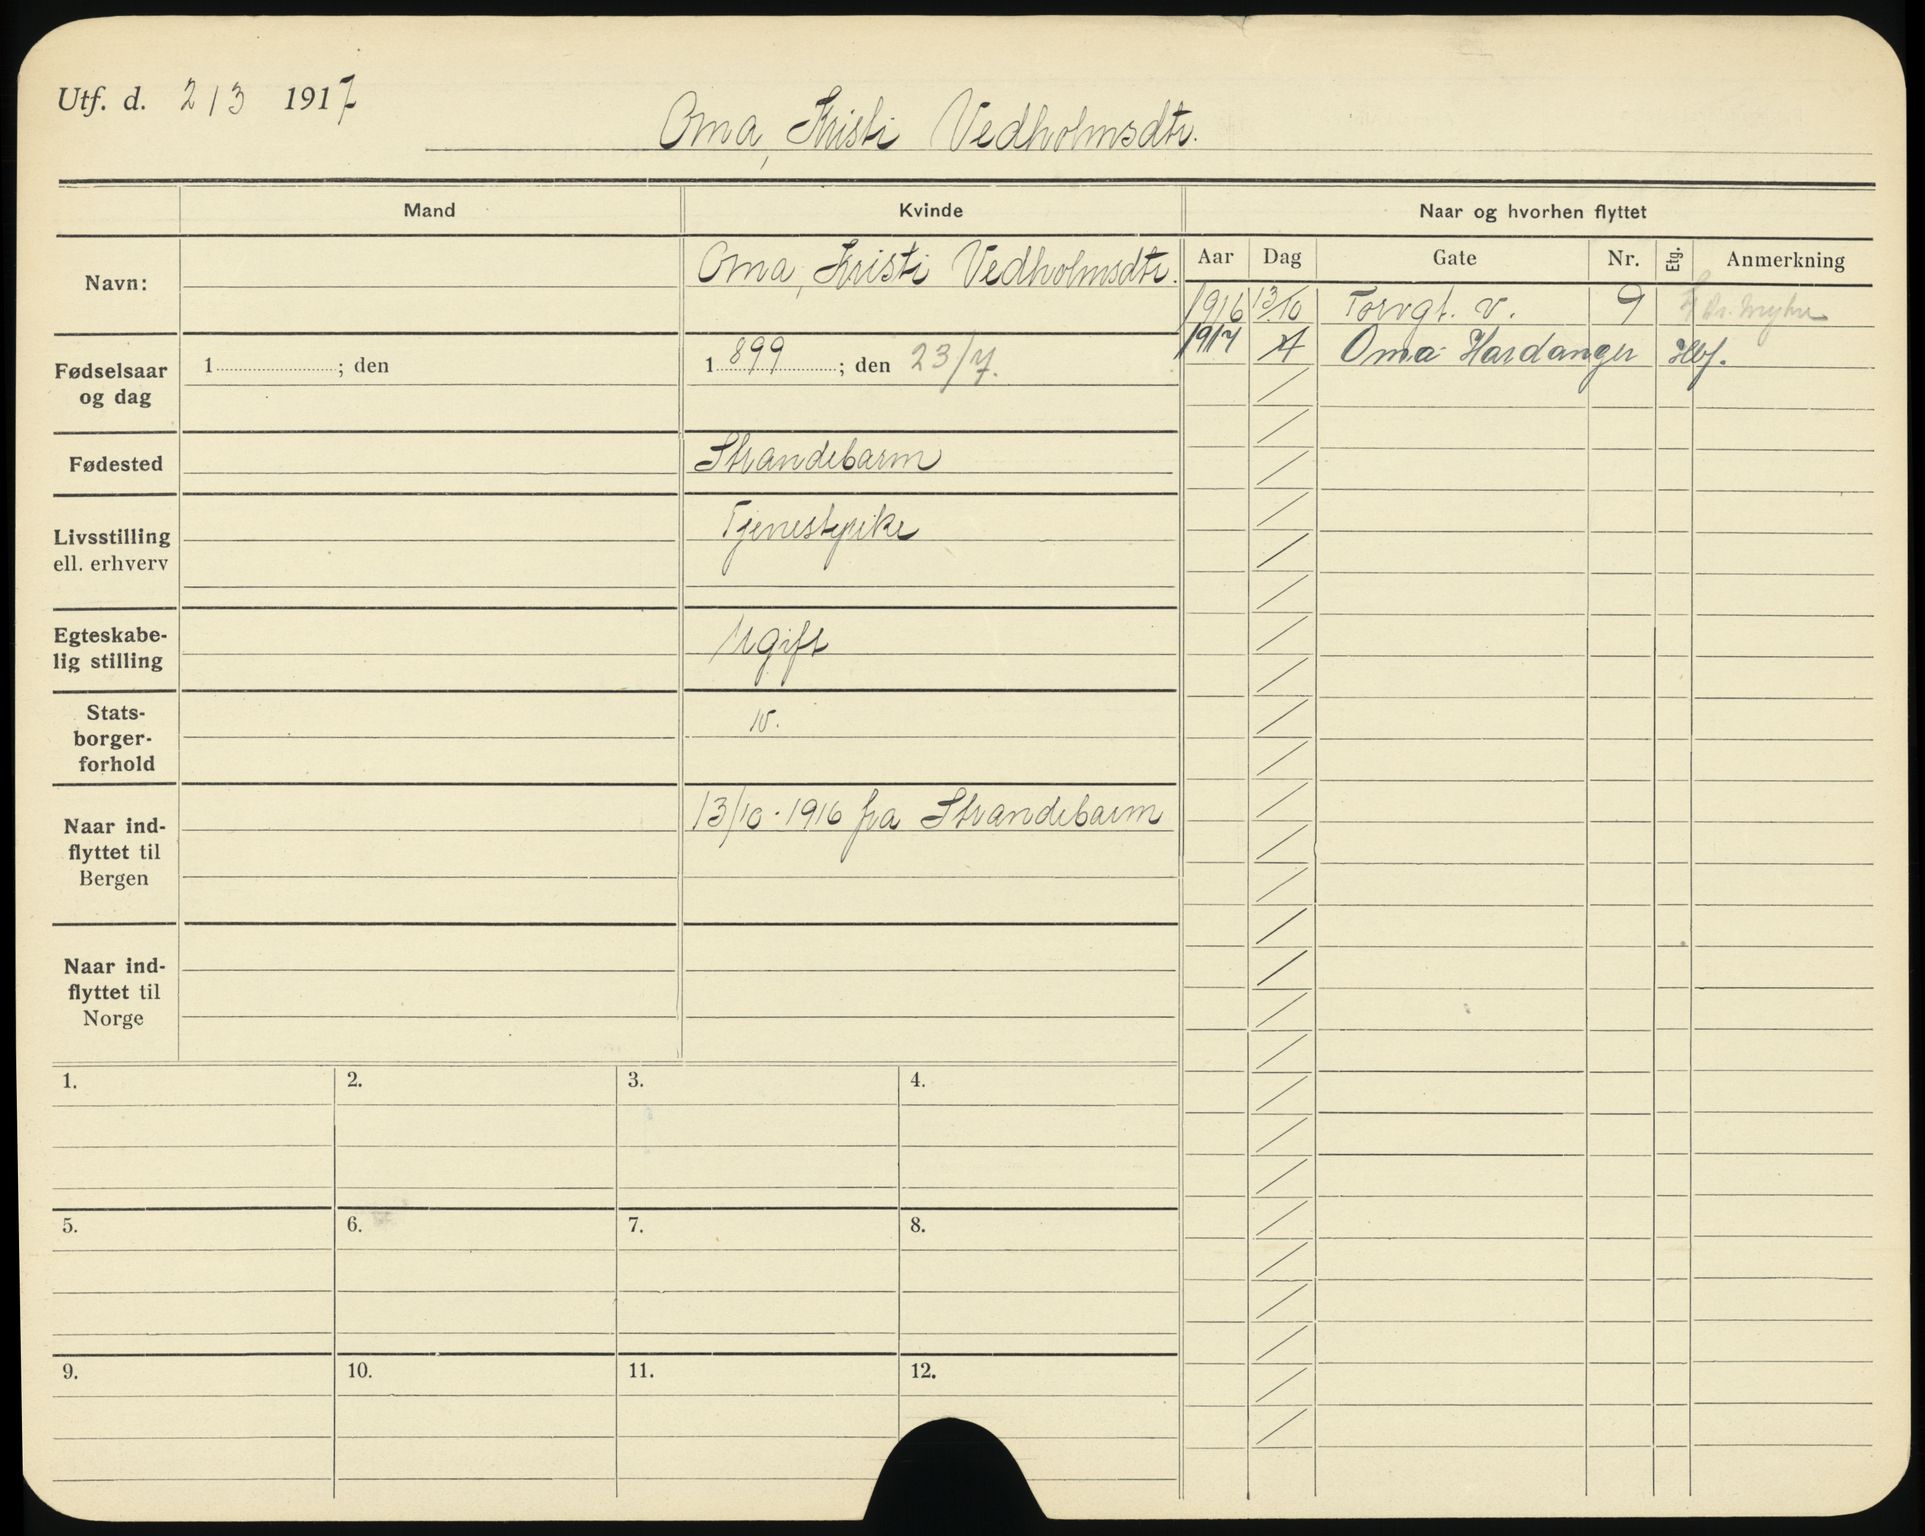 Utf. d. 2/3 1917
Oma, Kristi Vedholmsdtr.
Mand Kvinde Naar og hvorhen flyttet
Navn: Oma, Kristi Vedholmsdtr.
Aar Dag Gate Nr. Etg. Anmerkning
1916 13/10 Torvgt. v. 9
1917 4/ Oma Hardanger Hbf.
Fødselsaar og dag 1 ; den 1899 ; den 23/7.
Fødested Strandebarm
Livsstilling ell. erhverv Tjenestpike
Egteskabe-
lig stilling Ugift
Stats-
borger-
forhold n.
Naar ind-
flyttet til
Bergen 13/10 · 1916 fra Strandebarm
Naar ind-
flyttet til
Norge
1. 2. 3. 4.
5. 6. 7. 8.
9. 10. 11. 12.